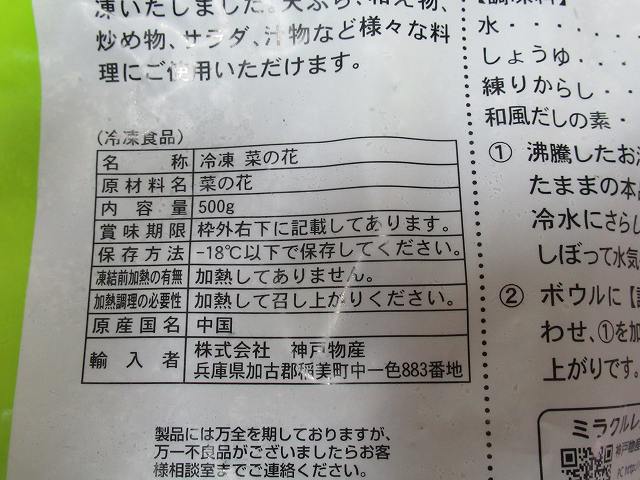 凍いたしました。天ぷら、和え物、
炒め物、サラダ、汁物など様々な料
理にご使用いただけます。
(冷凍食品)
名 称 冷凍 菜の花
原材料名 菜の花
内容量 500g
賞味期限 枠外右下に記載してあります。
保存方法 -18℃以下で保存してください。
凍結前加熱の有無 加熱してありません。
加熱調理の必要性 加熱して召し上がりください。
原産国名 中国
輸入者 株式会社 神戸物産
兵庫県加古郡稲美町中一色883番地
製品には万全を期しておりますが、
万一不良品がございましたらお客
様相談室までご連絡ください。
【調味料】
水・・・・・・・
しょうゆ・・・・
練りからし・・
和風だしの素・
① 沸騰したお
たままの本
冷水にさらし
しぼって水気
② ボウルに【
わせ、①を加
上がりです。
ミラクルレ
神戸物産
PC http: